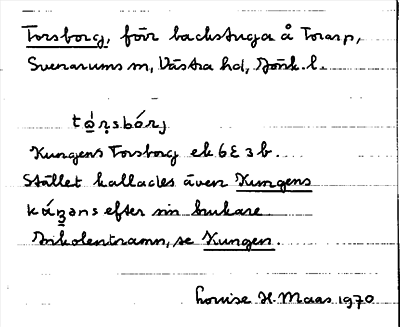 Torsborg, förr backstuga å Torarp,
Svenarums sn, Västra hd, Jönk. l.
tó̤r̥sbórj
Kungens Torsborg ek 6E 3 b.
Stället kallades även Kungens
káŋəns efter sin brukare
Kungen.
Louise H. Maas 1970